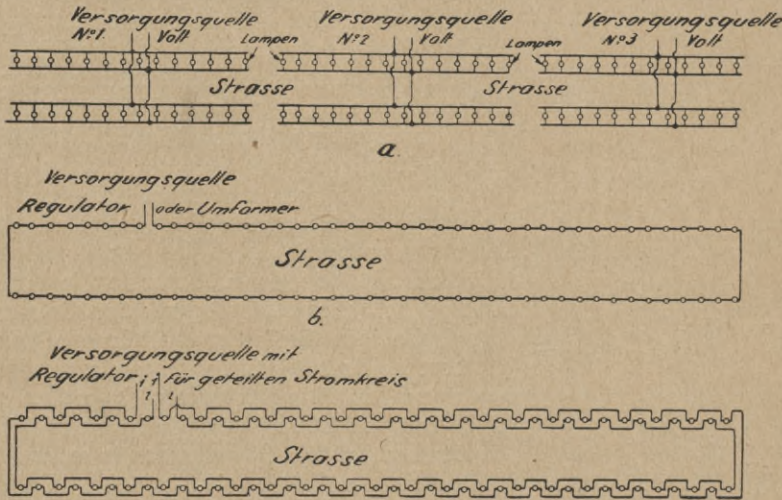 Versorgungsquelle
Nº1. Volt
Lampen
Versorgungsquelle
Nº2 Volt
Lampen
Versorgungsquelle
Nº3 Volt
Strasse
Strasse
a.
Versorgungsquelle
Regulator oder Umformer
Strasse
b.
Versorgungsquelle mit
Regulator 1 1 für geteilten Stromkreis
2 2
Strasse